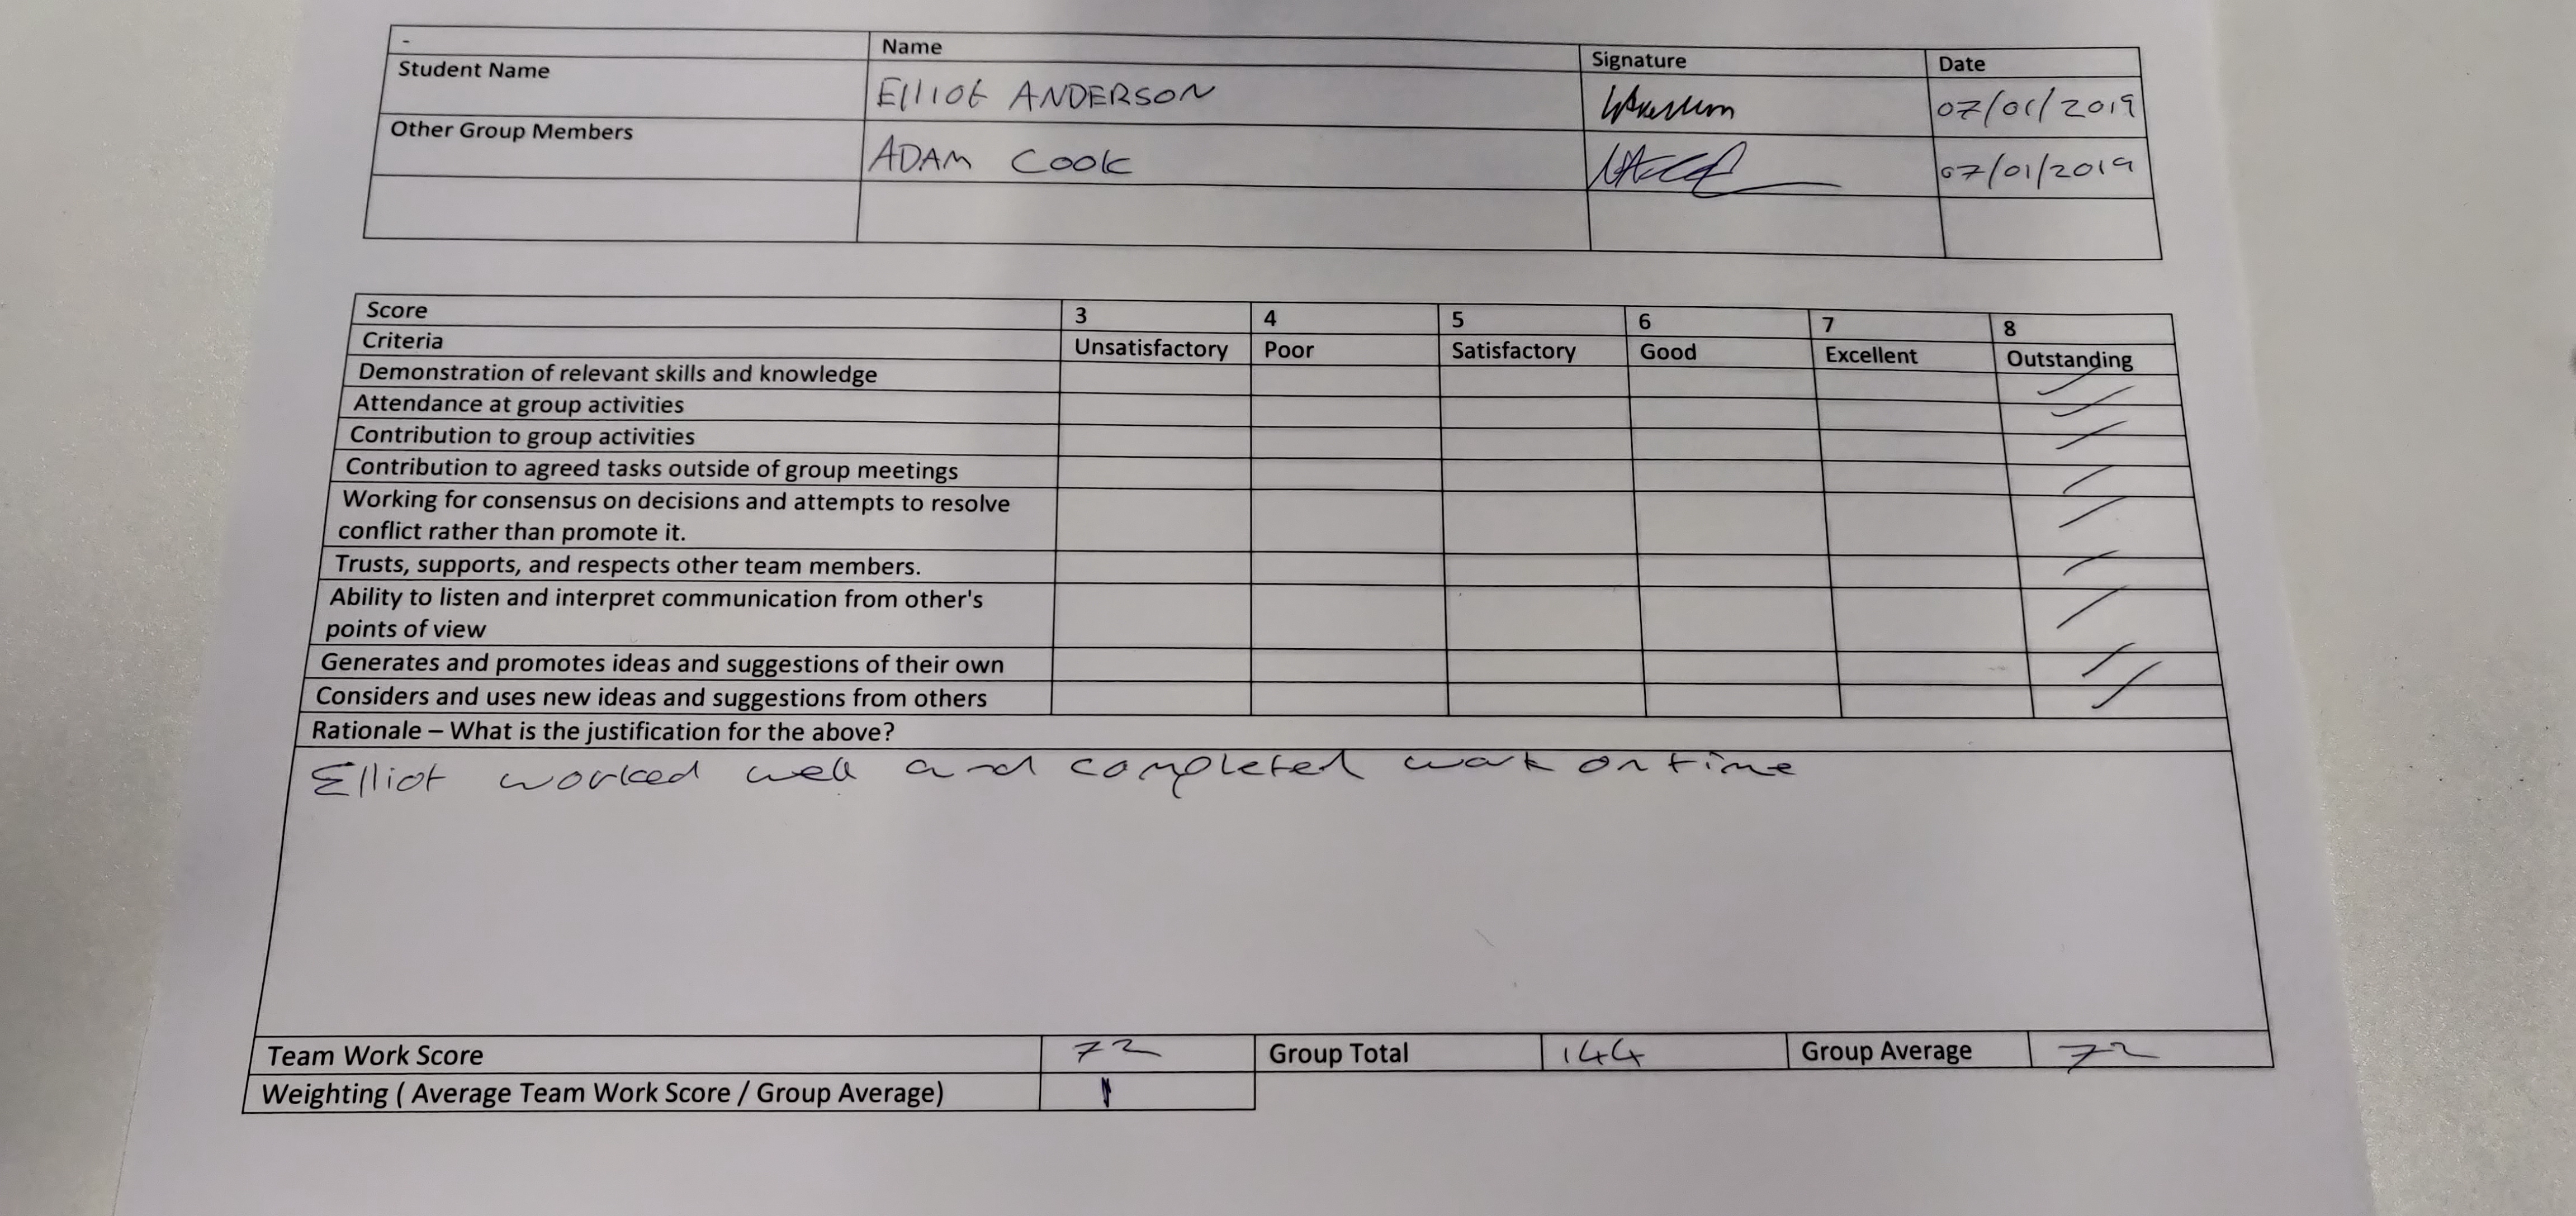 - Name Signature Date
Student Name Elliot ANDERSON 07/01/2019
Other Group Members ADAM COOK 07/01/2019
Score 3 4 5 6 7 8
Criteria Unsatisfactory Poor Satisfactory Good Excellent Outstanding
Demonstration of relevant skills and knowledge
Attendance at group activities
Contribution to group activities
Contribution to agreed tasks outside of group meetings
Working for consensus on decisions and attempts to resolve
conflict rather than promote it.
Trusts, supports, and respects other team members.
Ability to listen and interpret communication from other's
points of view
Generates and promotes ideas and suggestions of their own
Considers and uses new ideas and suggestions from others
Rationale – What is the justification for the above?
Elliot worked well and completed work on time
Team Work Score 72 Group Total 144 Group Average 72
Weighting ( Average Team Work Score / Group Average) 1